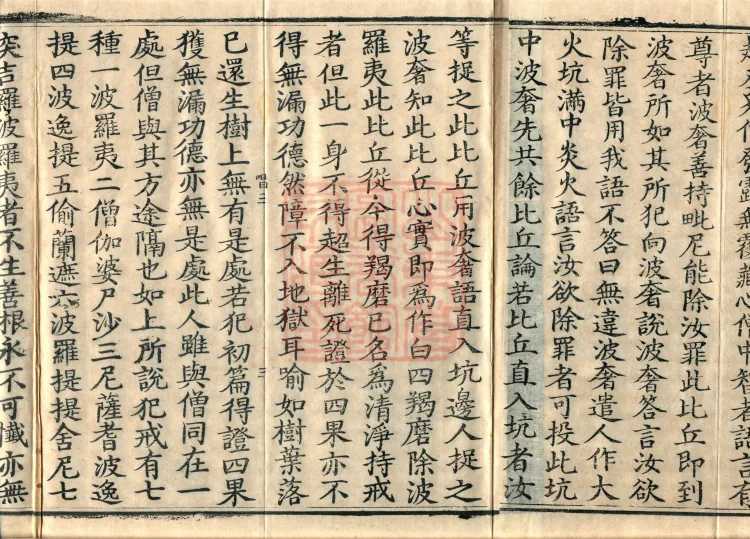 尊者波奢善持毗尼能除汝罪此比丘即到
波奢所如其所犯向波奢說波奢答言汝欲
除罪皆用我語不答曰無違波奢遣人作大
火坑滿中炎火語言汝欲除罪者可投此坑
中波奢先共餘比丘論若比丘直入坑者汝
等捉之此比丘用波奢語直入坑邊人捉之
波奢知此比丘心實即為作白四羯磨除波
羅夷此比丘從今得羯磨已名為清淨持戒
者但此一身不得超生離死證於四果亦不
得無漏功德然障不入地獄耳喻如樹葉落
已還生樹上無有是處若犯初篇得證四果
獲無漏功德亦無是處此人雖與僧同在一
處但僧與其方途隔也如上所說犯戒有七
種一波羅夷二僧伽婆尸沙三尼薩耆波逸
提四波逸提五偷蘭遮六波羅提提舍尼七
突吉羅波羅夷者不生善根永不可懺亦無